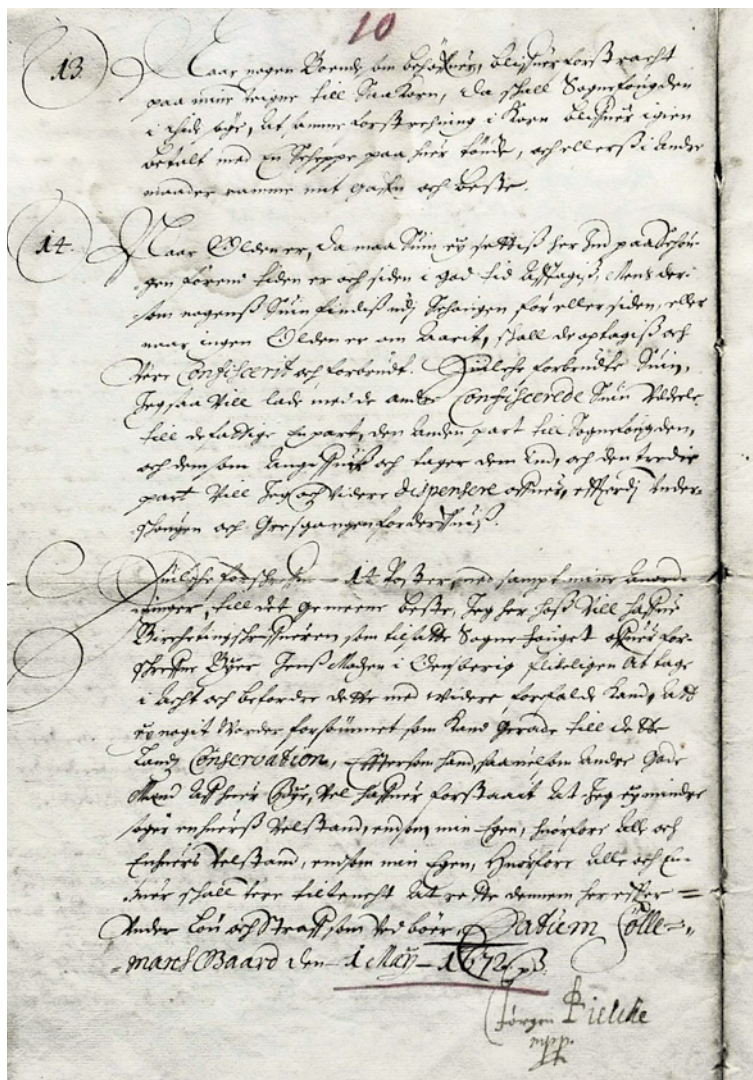 10
13. Naar nogen Bønder om behøfuer, blifuer forstracht
paa mine veigne till Saakorn, da skall Sognefougden
i tide see, at samme forstrechning i Korn blifuer igien
betalt med En Scheppe paa huer tønde, och ellers i andre
maader ramme mit gafn och beste.
14. Naar Olden er, da maa Suin ey settis her Ind paa Schou-
gen førend tiden er och siden i god tid afftagis, Mens der-
som nogens Suin findis udj Schougen før eller siden, eller
naar ingen Olden er om Aarit, skall de optagis och
vere Confiscerit och forbrudt. Huilche forbrudte Suin,
Jeg saa vill lade med de andre Confiscerede Suin uddele,
till de fattige En part, den anden part till Sognefougden,
och dem som angifuer och tager dem ind, och den tredie
part vill Jeg och videre dispensere ofuer, efftersom under-
schougen och Gresgangen forderfuis.
Huilche forschrefne 14 Poster, med sampt mine anord-
ninger, till det gemeene beste, Jeg her hos vill hafue
Birchetingschrifueren som tilsatte Sognefouget ofuer for-
schrefne Byer Jens Madsen i Censberig flitteligen at tage
i acht och befordre dette med widere forefalde kand, att
ey nogit worder forsømmet som kand gerade till dette
Lands Conservation, Efftersom hand, saauelsom andre gode
Mend aff huer Bye, vel hafuer forstaait at Jeg ey mindre
søger enhuers velstand, endsom min Egen, huorfore alle och
Enhuers velstand, endsom min Egen, Huorfore alle och En-
huer schall vere tiltencht at rette dennem her effter =
under Lou och Straff som ved bør, Datum Cölle-
marchs Gaard den 1 Maÿ 1672. p.
Jørgen Bielche
mpp.